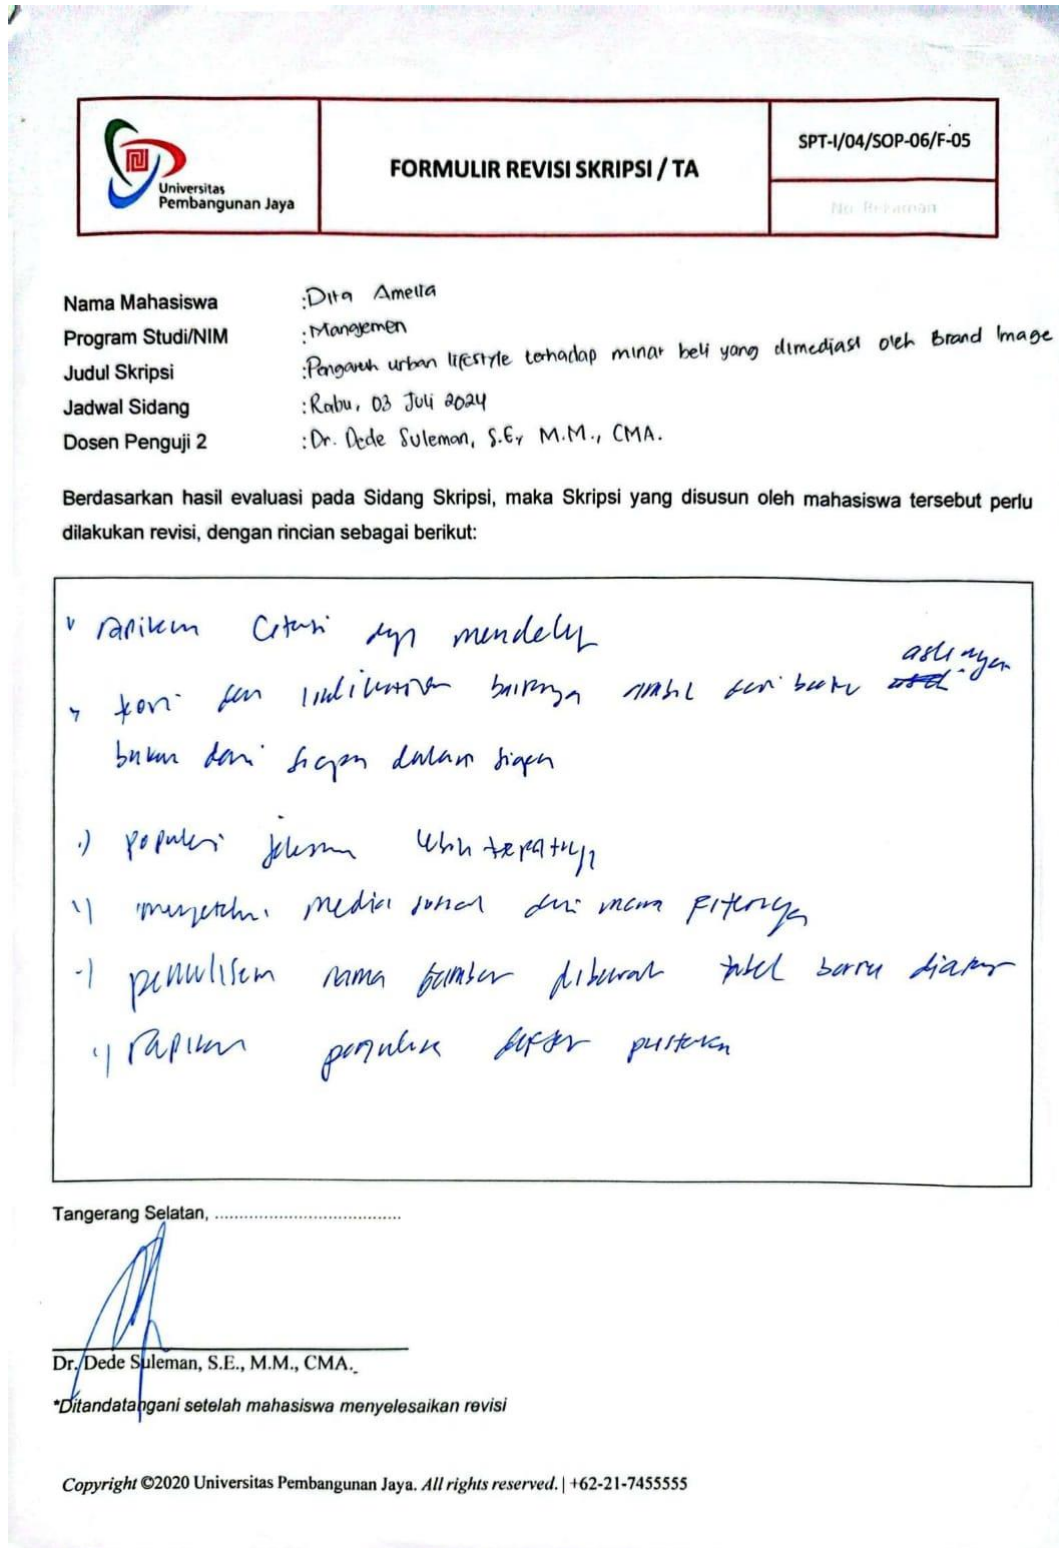 Universitas
Pembangunan Jaya
FORMULIR REVISI SKRIPSI / TA
SPT-I/04/SOP-06/F-05
No. Rekaman
Nama Mahasiswa :Dita Amelia
Program Studi/NIM :Manajemen
Judul Skripsi :Pengaruh urban lifestyle terhadap minat beli yang dimediasi oleh Brand Image
Jadwal Sidang :Rabu, 03 Juli 2024
Dosen Penguji 2 :Dr. Dede Suleman, S.E, M.M., CMA.
Berdasarkan hasil evaluasi pada Sidang Skripsi, maka Skripsi yang disusun oleh mahasiswa tersebut perlu
dilakukan revisi, dengan rincian sebagai berikut:
rapikan Citasi dgn mendeley
teori dan indikator baiknya ambil dari buku aslinya
bukan dari siapa dalam siapa
populasi jelaskan lebih tepatnya
media sosial dari mana
penulisan nama sumber dibawah tabel
rapikan penulisan daftar pustaka
Tangerang Selatan, ......................................
Dr. Dede Suleman, S.E., M.M., CMA.
*Ditandatangani setelah mahasiswa menyelesaikan revisi
Copyright ©2020 Universitas Pembangunan Jaya. All rights reserved. | +62-21-7455555